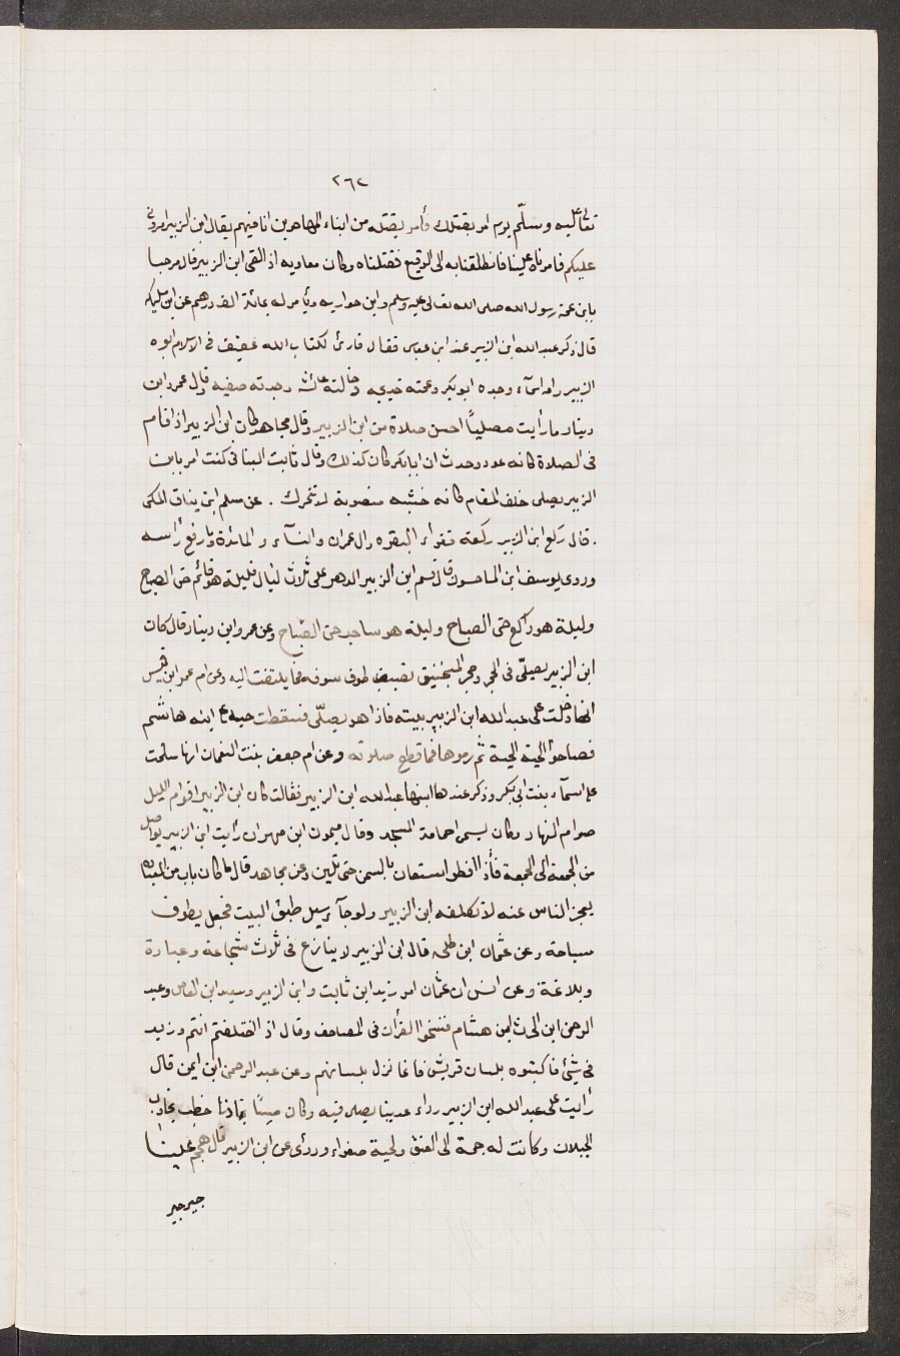 ٢٦٢
تعالى عليه وسلّم يوم امر بقتلك فأمر بقتله من ابناء المهاجرين انا فيهم يقال ابن الزبير امروني
عليكم فامرناه علينا فانطلقنا به الى البقيع فقتلناه وكان معاويه اذ القى ابن الزبير قال مرحبا
بابن عمة رسول الله صلى الله تعالى عليه وسلم وابن حواريه ويأمر له بمائة الف درهم عن ابن مليكه
قال ذكر عبد الله ابن الزبير عند ابن عباس فقال قارئ لكتاب الله عفيف في الاسلام ابوه
الزبير وامه اسمآء وجده ابو بكر وعمته خديجه وخالته عائشه وجدته صفيه وقال عمرو ابن
دينار ما رأيت مصلياً احسن صلاة من ابن الزبير وقال مجاهد كان ابن الزبير اذا قام
في الصلاة كانه عود وحدث ان ابا بكر كان كذلك وقال ثابت البناني كنت امر بابن
الزبير يصلي خلف المقام كانه خشبه منصوبة لا تتحرك . عن مسلم ابن يناق المكى
. قال ركع ابن الزبير ركعة فقرأء البقره وال عمران والنسآء و المائدة وما رفع رأسه
وروى يوسف ابن الماجسون قال قسم ابن الزبير الدهر على ثلاث ليال فليلة هو قائم حتى الصباح
وليلة هو راكع حتى الصباح وليلة هو ساجد حتى الصّباح وعن عمرو ابن دينار قال كان
ابن الزبير يصلّى في الحجر وحجر المنجنيق تصيب طرف ثوبه فما يلتفت اليه وعن ام عمر ابن قيس
انها دخلت على عبد الله ابن الزبير بيته فاذا هو يصلّى فسقطت حيه على ابنه هاشم
فصاحوا الحية الحية ثم رموها فما قطع صلوته وعن ام جعفر بنت النعمان انها سلمت
على اسمآء بنت ابي بكر وذكر عندها ابنها عبد الله ابن الزبير فقالت كان ابن الزبير قوام الليل
صوام النهار وكان يسمى حمامة المسجد وقال ميمون ابن مهران رأيت ابن الزبير يواصل
من الجمعة الى الجمعة فأذا افطر استعان بالسمن حتى يلين وعن مجاهد قال ما كان باب من العباده
يعجز الناس عنه لا تكلفه ابن الزبير ولو جآء سيل طبق البيت فجعل يطوف
سباحة وعن عثمان ابن طلحه قال ابن الزبير لا ينازع في ثلاث شجاعة وعبادة
وبلاغة وعن انس ان عثمان امر زيد ابن ثابت وابن الزبير وسعيد ابن العاص وعبد
الرحمن ابن الحرث ابن هشام فنسخوا القرأن في المصاحف وقال اذ اختلفتم انتم وزيد
في شيئ فاكتبوه بلسان قريش فأنما نزل بلسانهم وعن عبد الرحمن ابن ايمن قال
رأيت على عبد الله ابن الزبير رداء عدينا يصلى فيه وكان صيتًا اذا خطب تجاذب
الجبلان وكانت له جمة الى العنق ولحية صفراء وروى عن ابن الزبير قال هجم علينا
جيرجير